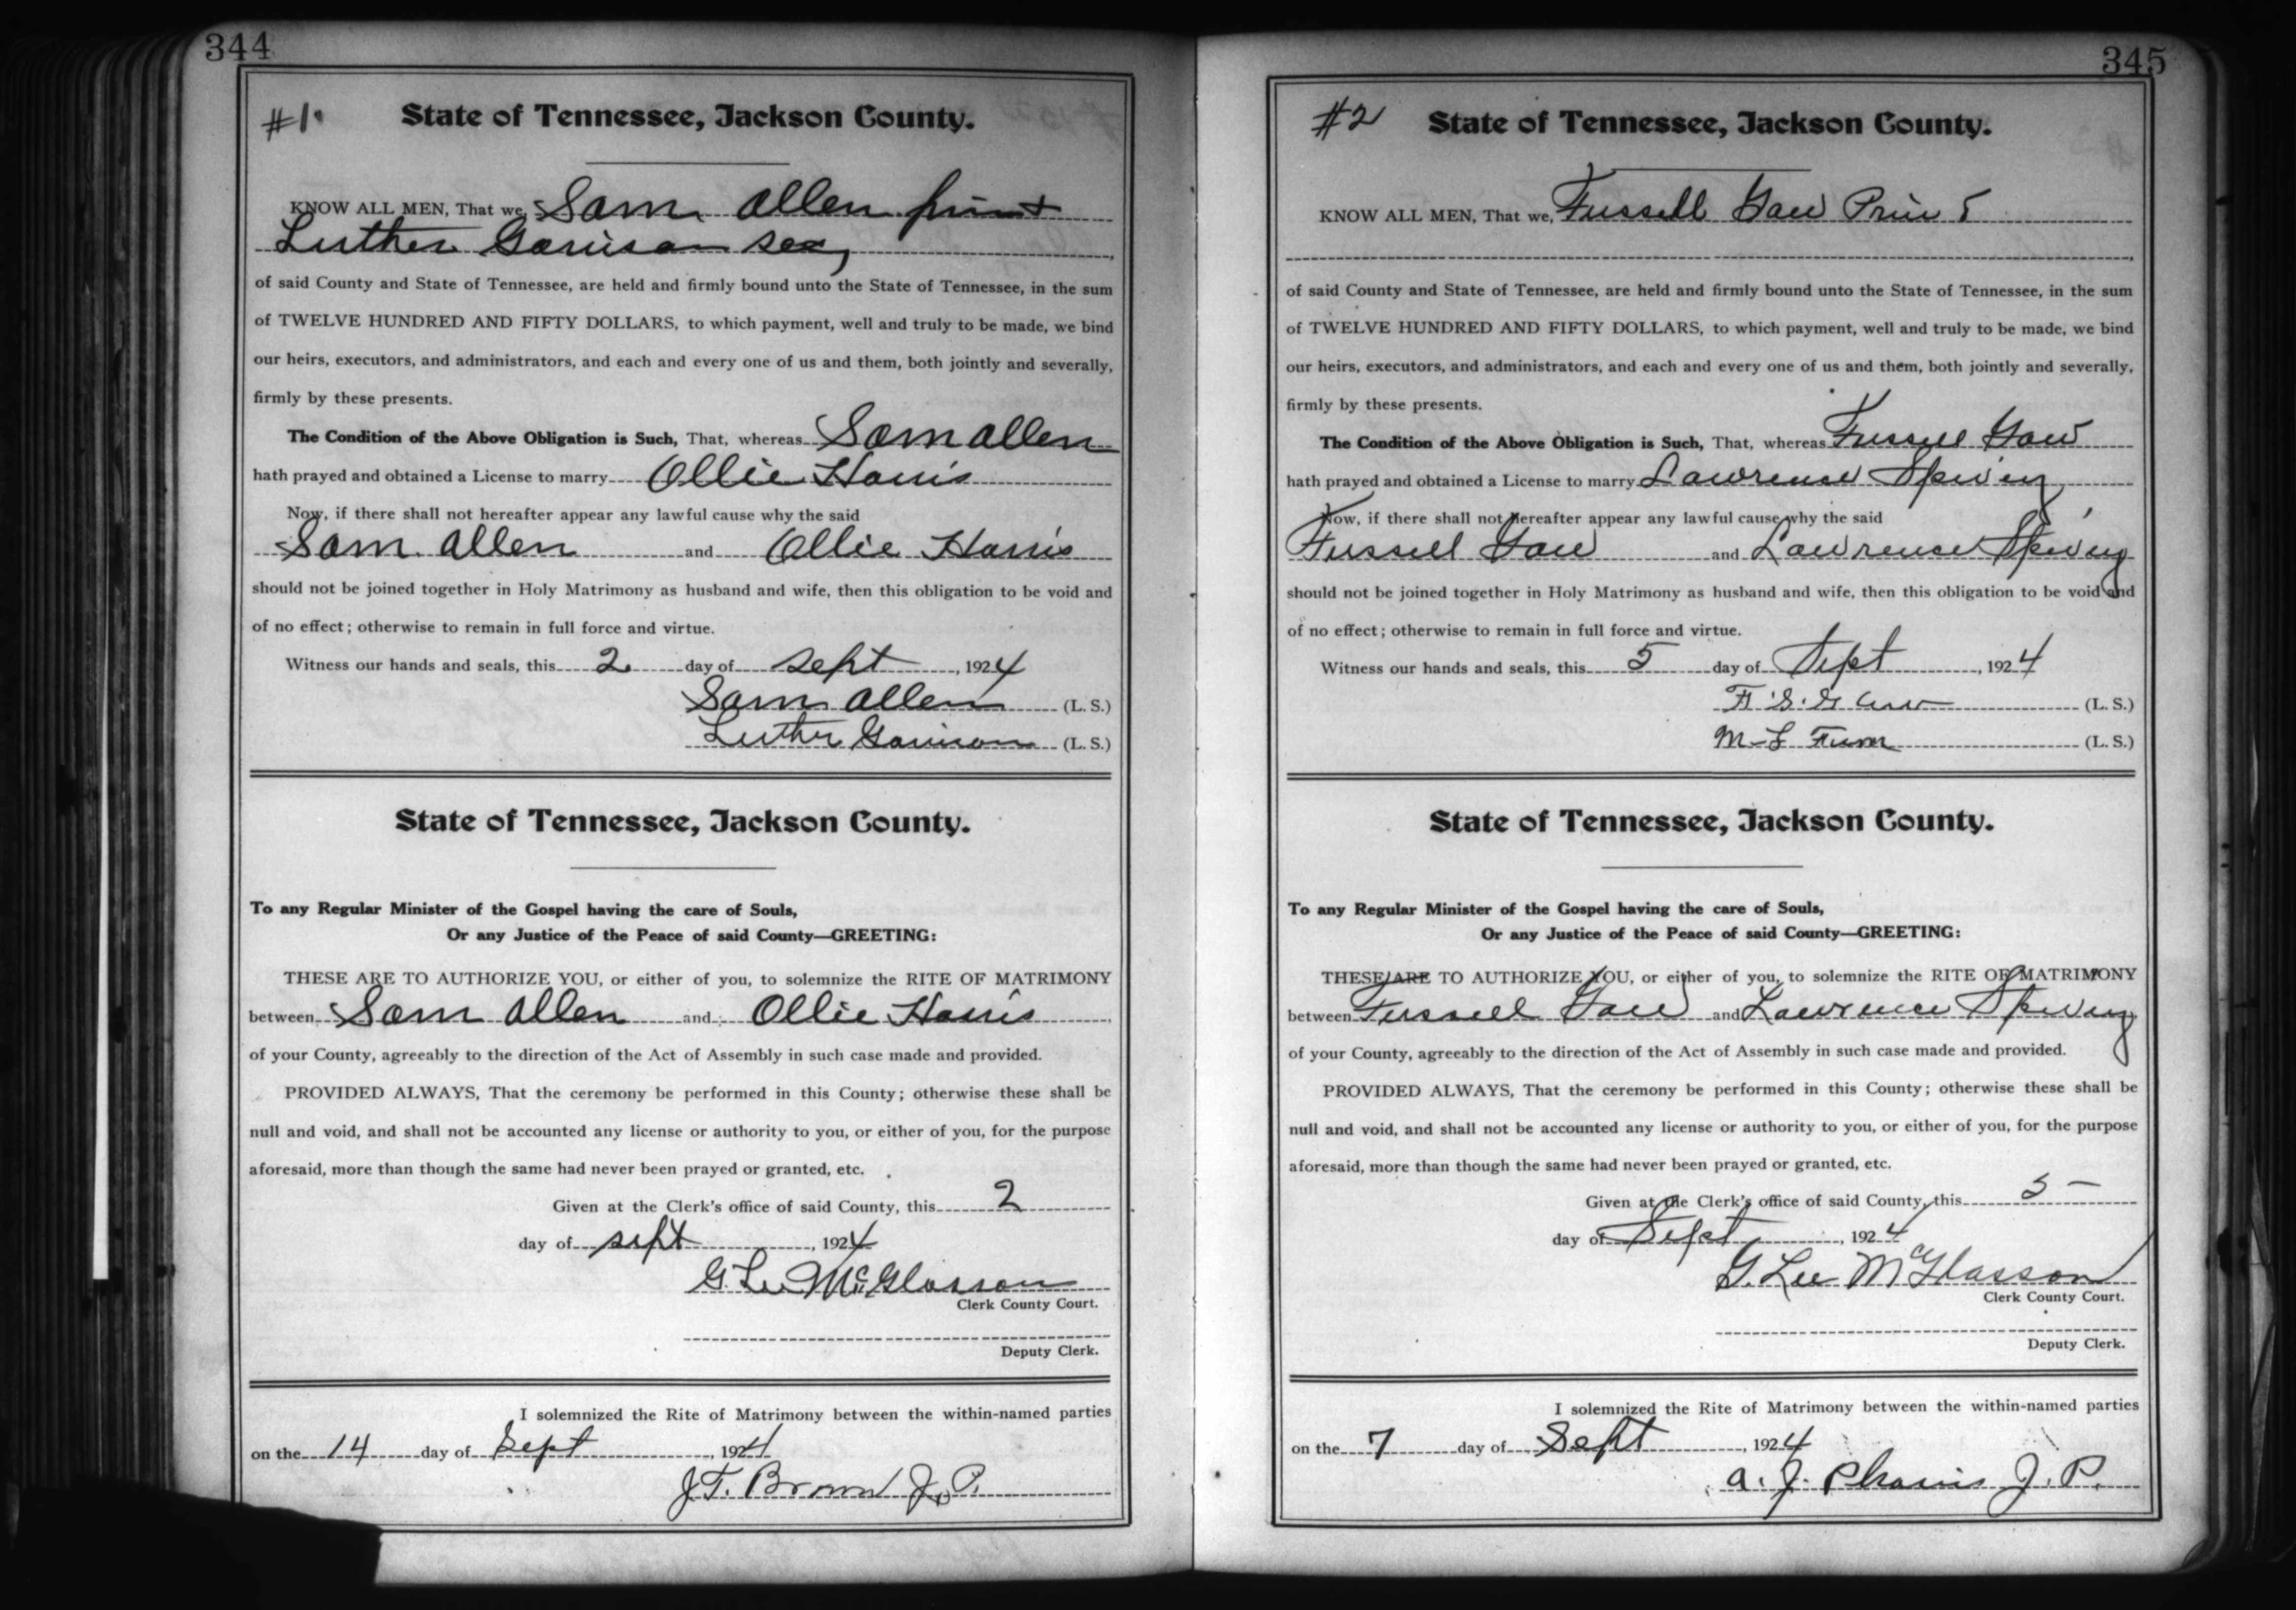 344
#1.
State of Tennessee, Jackson County.
KNOW ALL MEN, That we, Sam Allen prin &
Luther Garrison sec,
of said County and State of Tennessee, are held and firmly bound unto the State of Tennessee, in the sum
of TWELVE HUNDRED AND FIFTY DOLLARS, to which payment, well and truly to be made, we bind
our heirs, executors, and administrators, and each and every one of us and them, both jointly and severally,
firmly by these presents.
The Condition of the Above Obligation is Such, That, whereas Sam Allen
hath prayed and obtained a License to marry Ollie Harris
Now, if there shall not hereafter appear any lawful cause why the said
Sam Allen and Ollie Harris
should not be joined together in Holy Matrimony as husband and wife, then this obligation to be void and
of no effect; otherwise to remain in full force and virtue.
Witness our hands and seals, this 2 day of Sept, 1924
Sam Allen (L. S.)
Luther Garrison (L. S.)
State of Tennessee, Jackson County.
To any Regular Minister of the Gospel having the care of Souls,
Or any Justice of the Peace of said County—GREETING:
THESE ARE TO AUTHORIZE YOU, or either of you, to solemnize the RITE OF MATRIMONY
between Sam Allen and Ollie Harris
of your County, agreeably to the direction of the Act of Assembly in such case made and provided.
PROVIDED ALWAYS, That the ceremony be performed in this County; otherwise these shall be
null and void, and shall not be accounted any license or authority to you, or either of you, for the purpose
aforesaid, more than though the same had never been prayed or granted, etc.
Given at the Clerk's office of said County, this 2
day of Sept, 1924
G. Lee McGlasson
Clerk County Court.
Deputy Clerk.
I solemnized the Rite of Matrimony between the within-named parties
on the 14 day of Sept, 1924
J. T. Brown J. P.
345
#2
State of Tennessee, Jackson County.
KNOW ALL MEN, That we, Fussell Gaw Prin &
of said County and State of Tennessee, are held and firmly bound unto the State of Tennessee, in the sum
of TWELVE HUNDRED AND FIFTY DOLLARS, to which payment, well and truly to be made, we bind
our heirs, executors, and administrators, and each and every one of us and them, both jointly and severally,
firmly by these presents.
The Condition of the Above Obligation is Such, That, whereas Fussell Gaw
hath prayed and obtained a License to marry Lawrence Spivey
Now, if there shall not hereafter appear any lawful cause why the said
Fussell Gaw and Lawrence Spivey
should not be joined together in Holy Matrimony as husband and wife, then this obligation to be void and
of no effect; otherwise to remain in full force and virtue.
Witness our hands and seals, this 5 day of Sept, 1924
F. S. Gaw (L. S.)
M L (L. S.)
State of Tennessee, Jackson County.
To any Regular Minister of the Gospel having the care of Souls,
Or any Justice of the Peace of said County—GREETING:
THESE ARE TO AUTHORIZE YOU, or either of you, to solemnize the RITE OF MATRIMONY
between Fussell Gaw and Lawrence Spivey
of your County, agreeably to the direction of the Act of Assembly in such case made and provided.
PROVIDED ALWAYS, That the ceremony be performed in this County; otherwise these shall be
null and void, and shall not be accounted any license or authority to you, or either of you, for the purpose
aforesaid, more than though the same had never been prayed or granted, etc.
Given at the Clerk's office of said County, this 5
day of Sept, 1924
G. Lee McGlasson
Clerk County Court.
Deputy Clerk.
I solemnized the Rite of Matrimony between the within-named parties
on the 7 day of Sept, 1924
A. J. Pharris J. P.